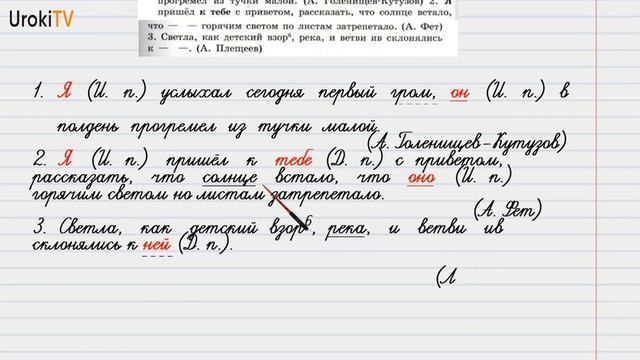 UrokiTV
прогремел из тучки малой. (А. Голенищев-Кутузов) 2. Я
пришёл к тебе с приветом, рассказать, что солнце встало,
что — — горячим светом по листам затрепетало. (А. Фет)
3. Светла, как детский взор⁶, река, и ветви ив склонялись
к — —. (А. Плещеев)
1. Я (И. п.) услыхал сегодня первый гром, он (И. п.) в
полдень прогремел из тучки малой.
(А. Голенищев-Кутузов)
2. Я (И. п.) пришёл к тебе (Д. п.) с приветом,
рассказать, что солнце встало, что оно (И. п.)
горячим светом по листам затрепетало.
(А. Фет)
3. Светла, как детский взор⁶, река, и ветви ив
склонялись к ней (Д. п.).
(Л